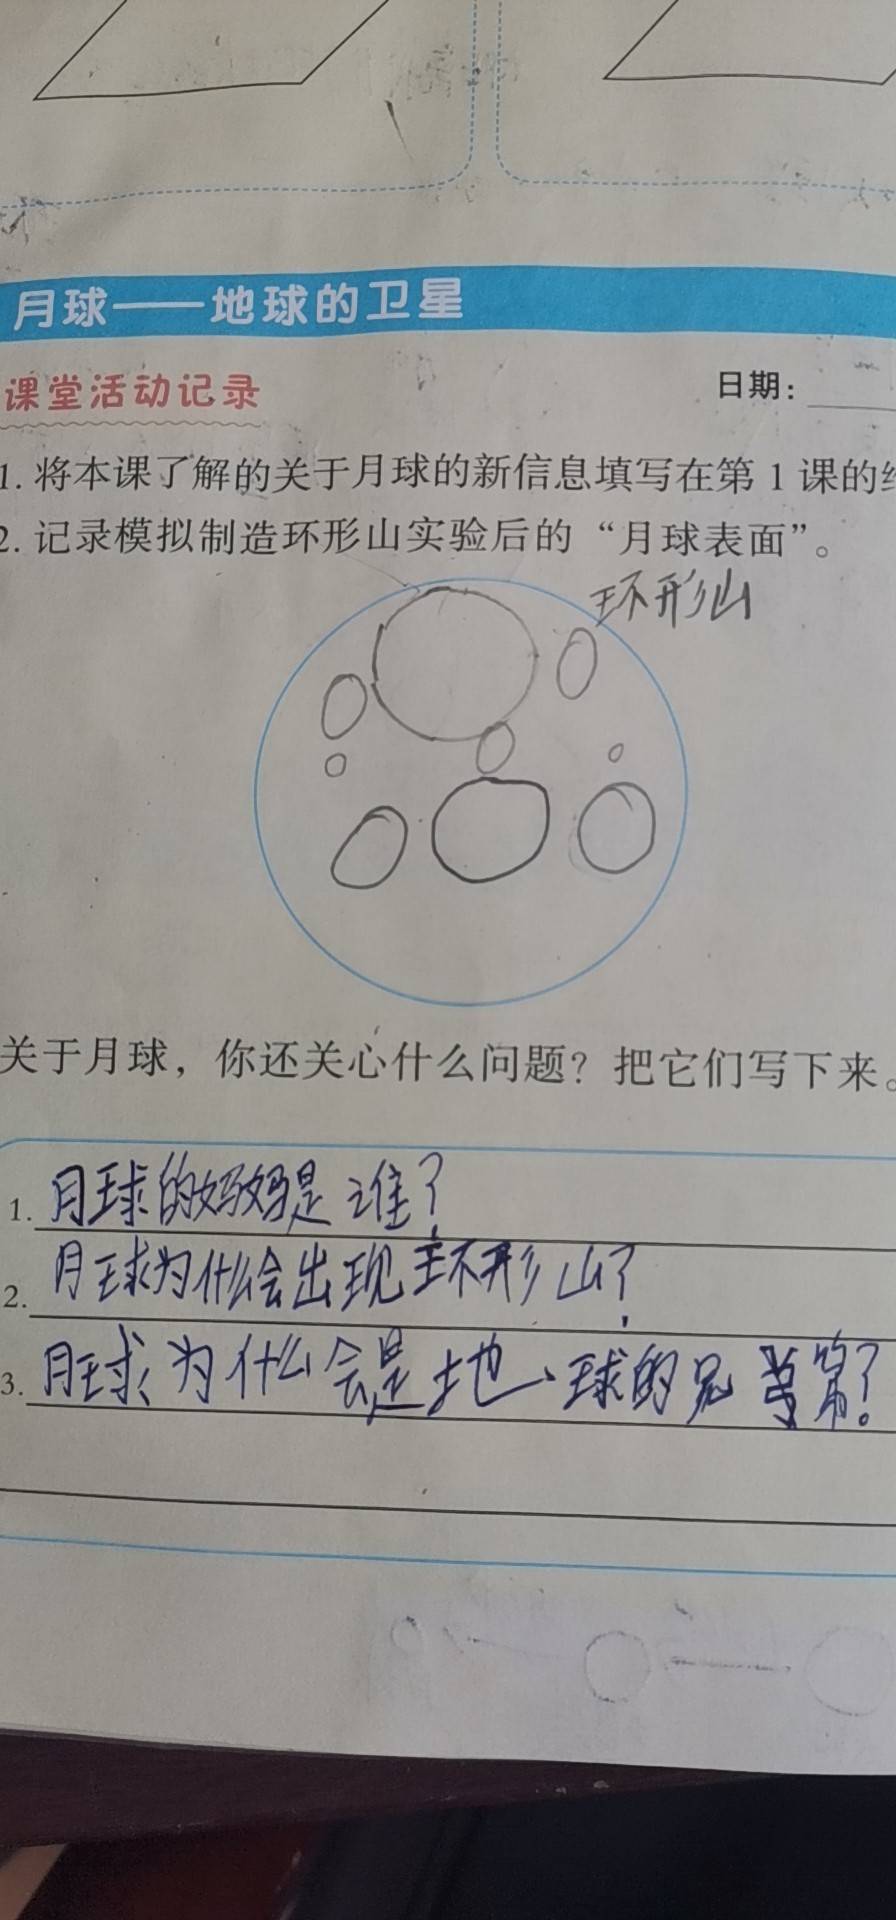 月球——地球的卫星
课堂活动记录
日期：
1. 将本课了解的关于月球的新信息填写在第 1 课的
2. 记录模拟制造环形山实验后的“月球表面”。
环形山
关于月球，你还关心什么问题？把它们写下来。
1. 月球的妈妈是谁？
2. 月球为什么会出现环形山？
3. 月球为什么会是地球的兄